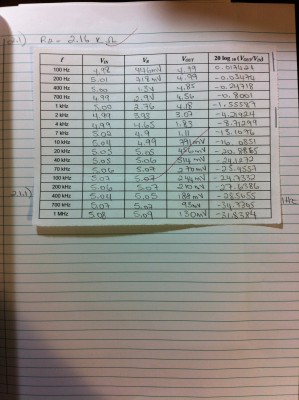 2.1) R2 = 2.16 K Ω
f Vin VR VOUT 20 log10 (VOUT/Vin)
100 Hz 4.98 4.99 0.017424
200 Hz 5.01 718mV 4.99
400 Hz 5.00 1.34 4.85 -0.24718
700 Hz 4.99 2.94 4.56 -0.8001
1 kHz 5.00 2.76 4.18 -1.55589
2 kHz 4.99 3.93 3.07 -4.21924
4 kHz 4.99 4.65 1.83 -8.71298
7 kHz 5.02 4.9 1.11 -13.1096
10 kHz 5.04 4.99 -16.0831
20 kHz 5.05 5.05 456mV -20.8865
40 kHz 5.05 5.06 314mV -24.1272
70 kHz 5.06 5.07 270mV
100 kHz 5.07 5.07 244mV
200 kHz 5.06 5.07 210mV -27.6386
400 kHz 5.04 5.05 188mV -28.5655
700 kHz 5.07 5.07 93mV
1 MHz 5.08 5.09 130mV -31.8384
2.1.1)
1Hz